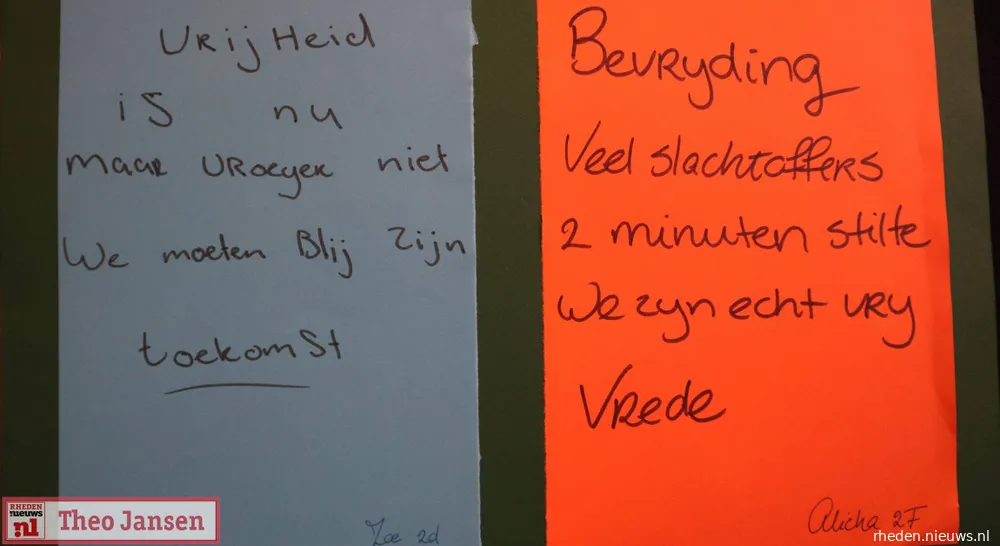 VRijHeid
is nu
maar vroeger niet
We moeten Blij zijn
toekomst
Zoe 2d
Bevryding
Veel slachtoffers
2 minuten stilte
We zyn echt vry
Vrede
Alicha 2F
RHEDEN
nieuws
.nl
Theo Jansen
rheden.nieuws.nl